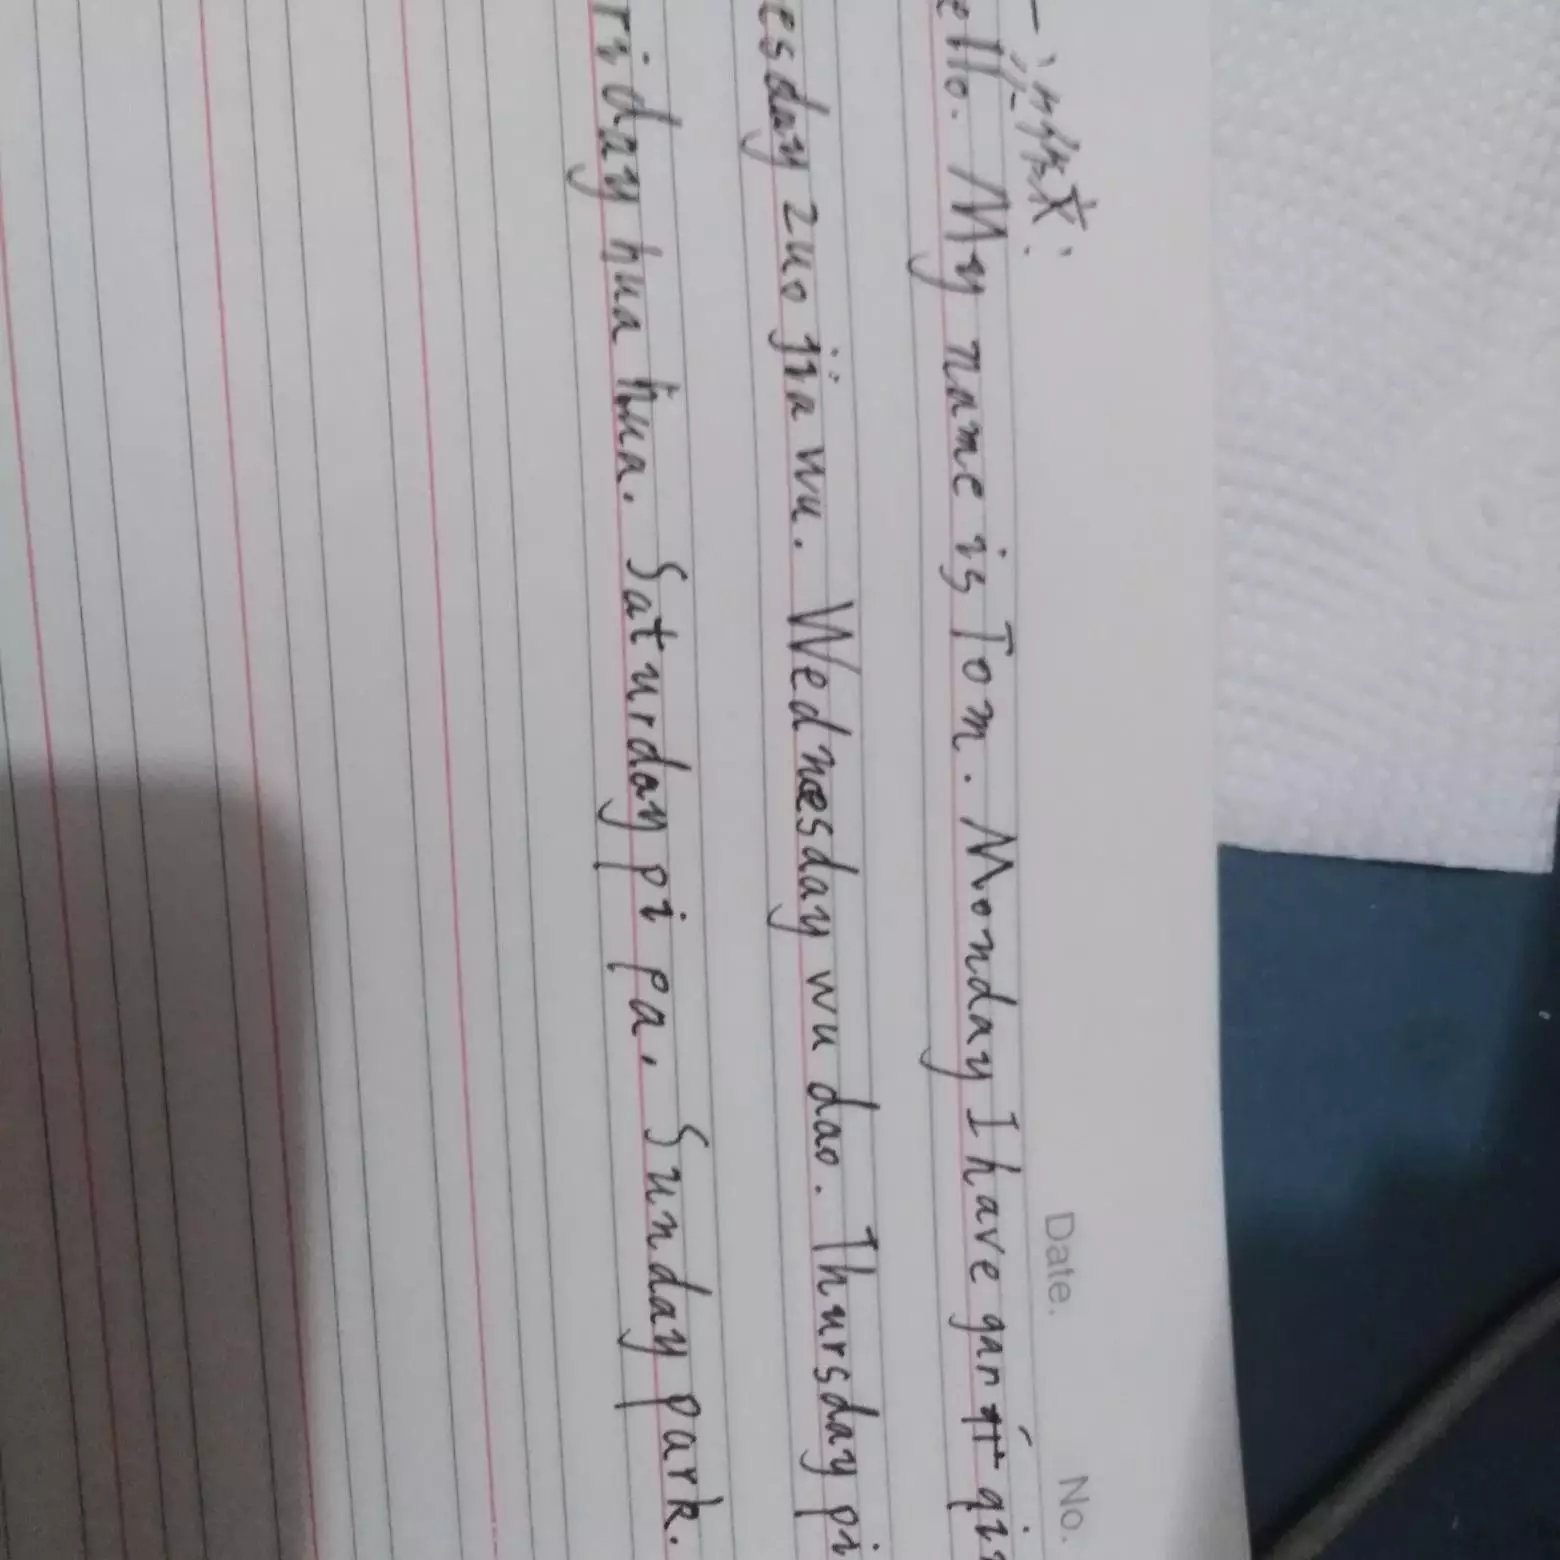 Date. No.
ello. My name is Tom. Monday I have gan qi
esday zuo jia wu. Wednesday wu dao. Thursday pi
riday hua hua. Saturday pi pa. Sunday park.